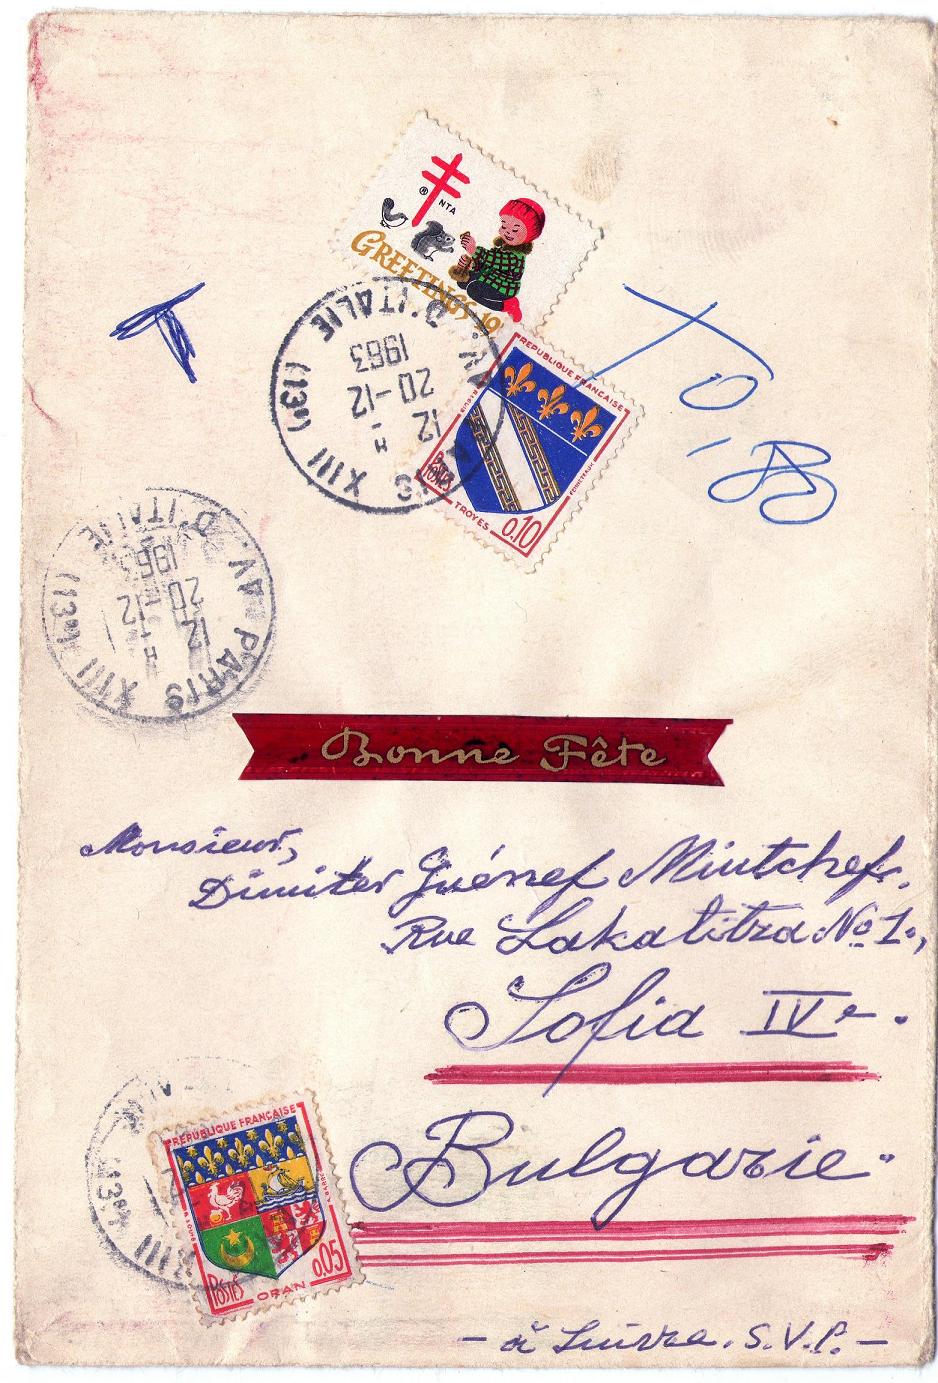 ® NTA
GREETINGS 19
AV. D'ITALIE
PARIS XIII (13e)
12 H
20-12
1963
T
TO
REPUBLIQUE FRANÇAISE
POSTES
TROYES
0.10
AV. D'ITALIE
PARIS XIII (13e)
12 H
20-12
1963
Bonne Fête
Monsieur,
Dimiter Guénef Mintchef.
Rue Lakatitza No 1.,
Sofia IVe.
Bulgarie.
XIII (13e)
REPUBLIQUE FRANÇAISE
POSTES ORAN 0.05
- à Suivre. S.V.P. -